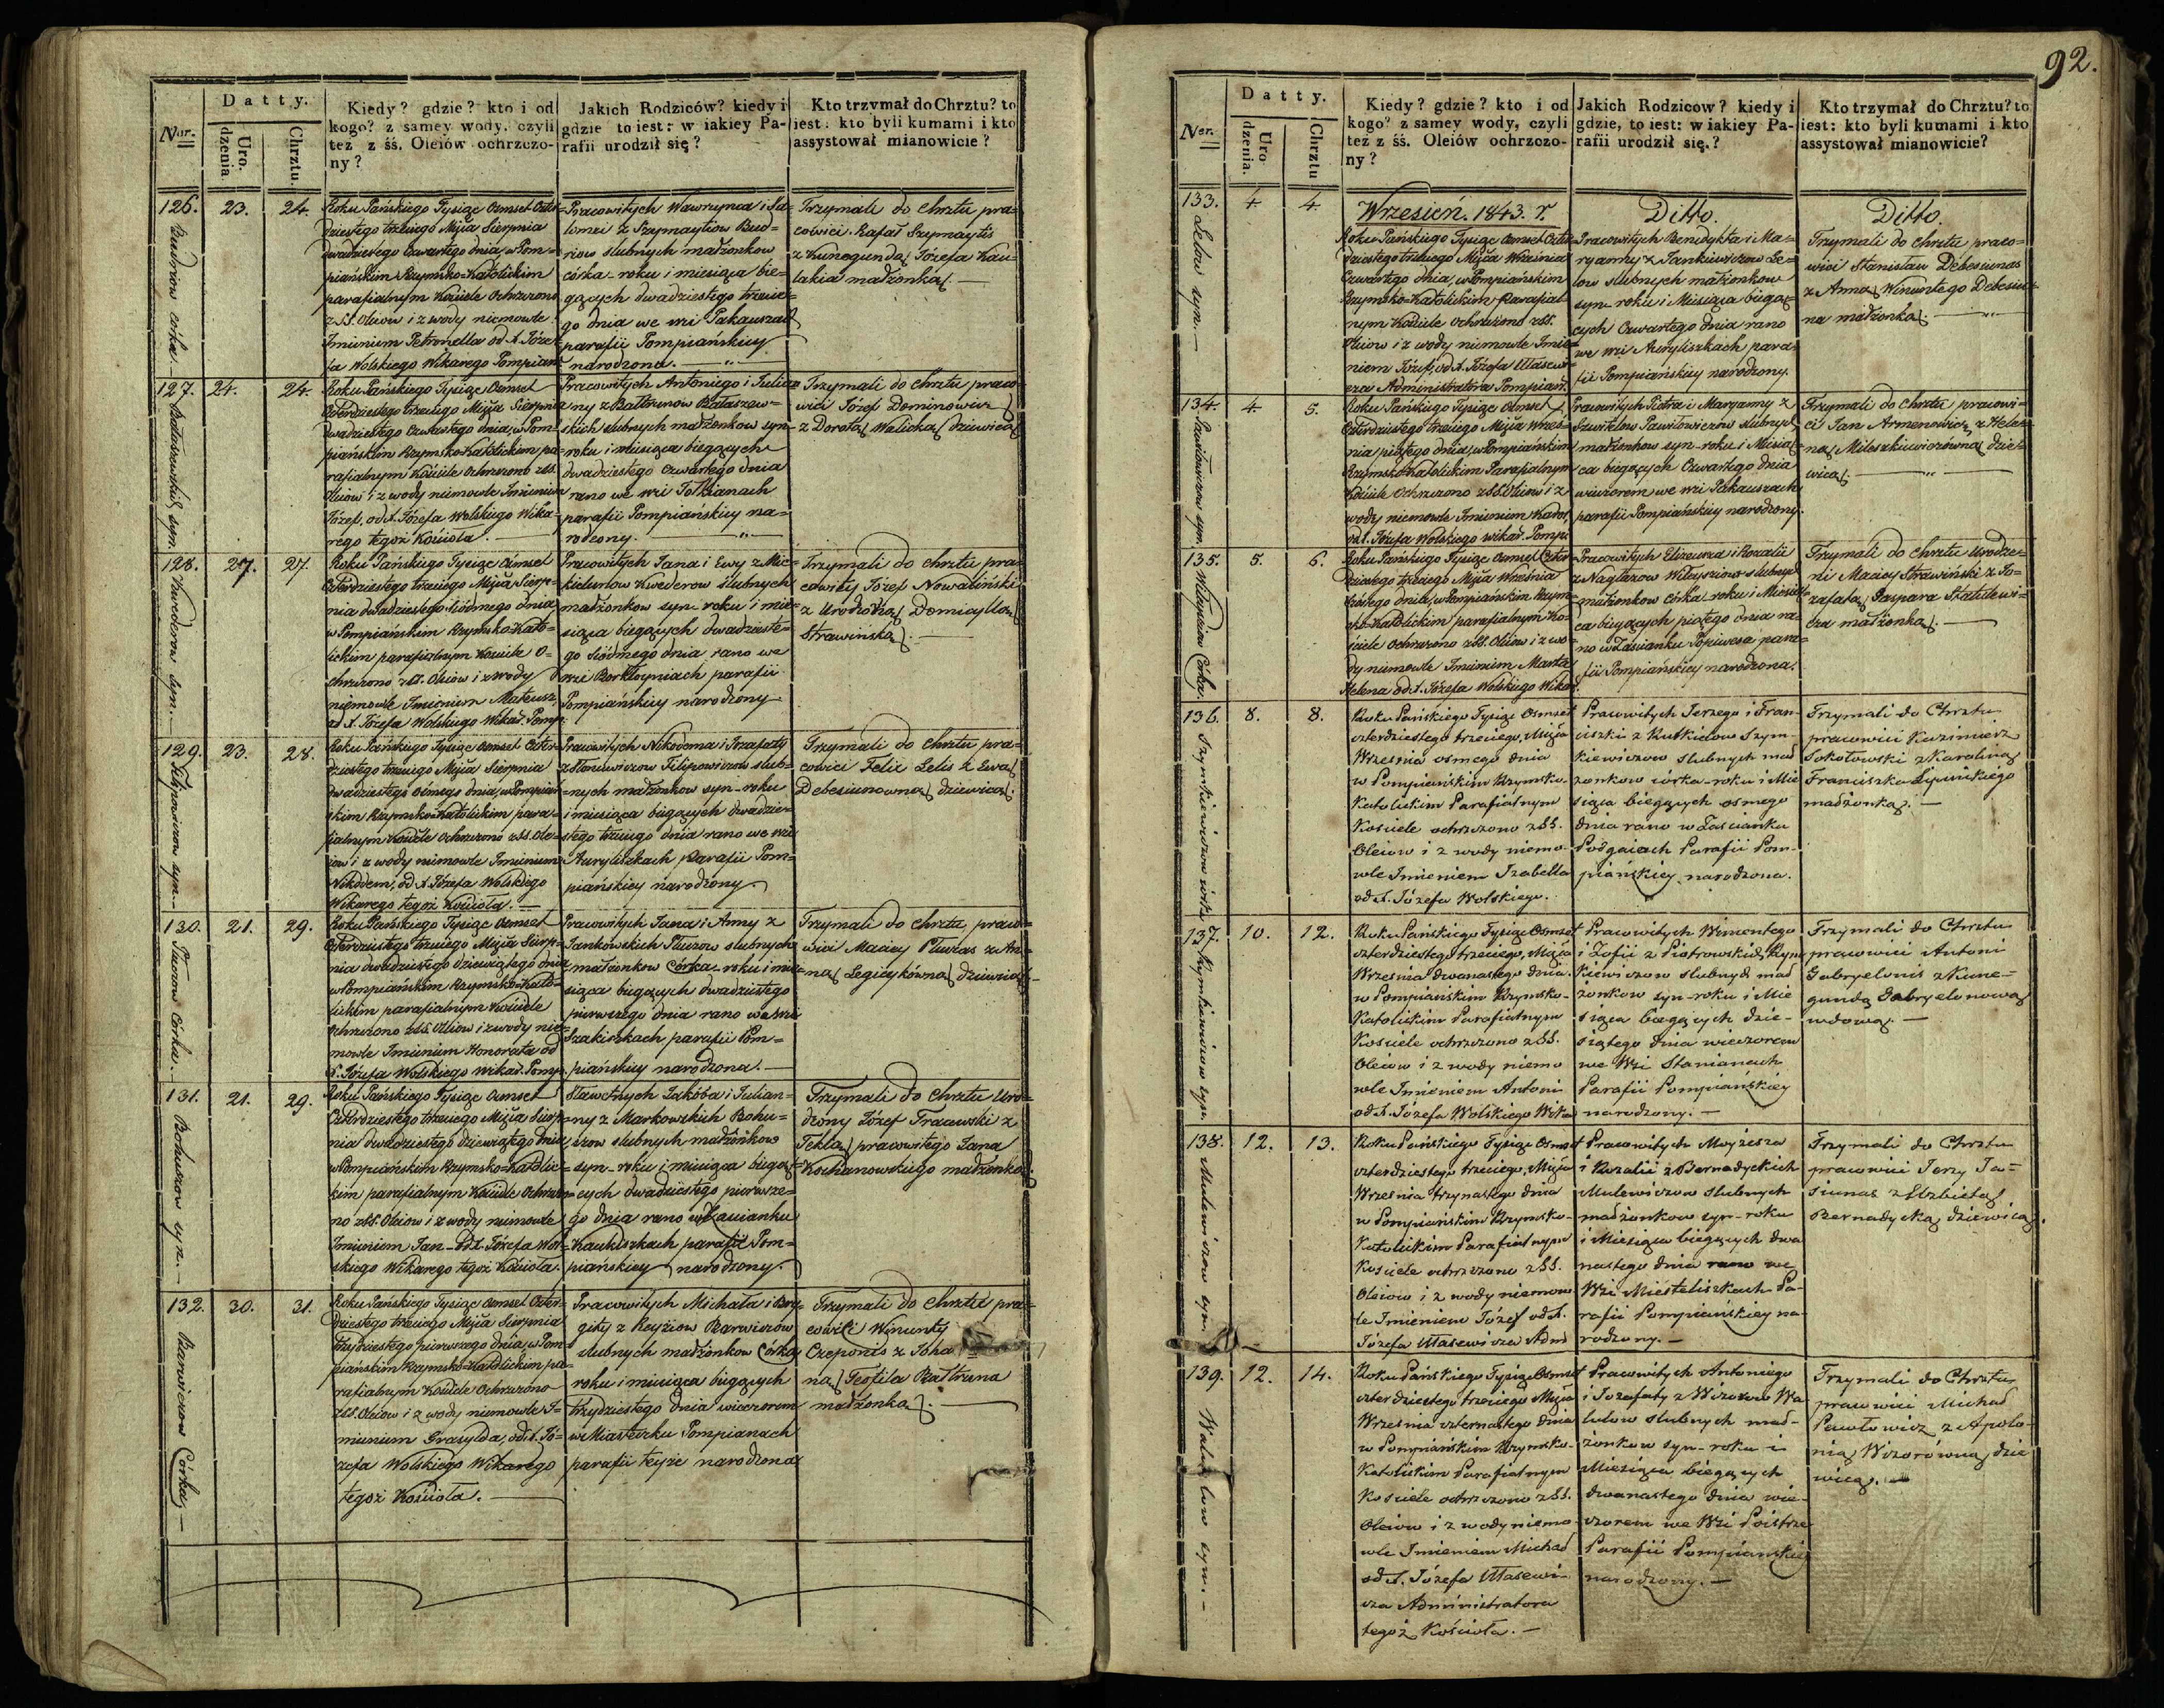 92.
Datty.
Ner.
Uro-
dzenia.
Chrztu.
Kiedy? gdzie? kto i od
kogo? z samey wody, czyli
też z śś. Oleiów ochrzczo-
ny?
Jakich Rodziców? kiedy i
gdzie to iest: w iakiey Pa-
rafii urodził się?
Kto trzymał do Chrztu? to
iest: kto byli kumami i kto
assystował mianowicie?
126.
23.
24.
Budriow córka.
Roku Pańskiego Tysiąc Osmset Czter-
dziestego trzeciego Mca Sierpnia
dwadziestego czwartego dnia, w Pom-
piańskim Rzymsko-Katolickim
parafialnym Kościele Ochrzczono
z SS. Oleiow i z wody niemowle
Imieniem Petronella od X. Józe-
fa Wolskiego Wikarego Pompiań
Pracowitych Wawrzynca i Sa-
lomei z Szymaytiow Bud-
riow slubnych małżonkow
córka - roku i miesiąca bie-
gących dwadziestego trzecie-
go dnia we wsi Pakauszach
parafii Pompiańskiey
narodzona.
Trzymali do chrztu pra-
cowici Rafał Szymaytis
z Kunegundą Józefa Kau-
lakia małżonką.
127.
24.
24.
Bataszewskich syn.
Roku Pańskiego Tysiąc Osmset
Czterdziestego trzeciego Mca Sierpnia
dwadziestego Czwartego dnia, w Pom-
piańskim Rzymsko-Katolickim pa-
rafialnym Kościele Ochrzczono z SS.
Oleiow i z wody niemowle Imieniem
Józef, od X. Józefa Wolskiego Wika-
rego tegoż Kościoła.
Pracowitych Antoniego i Julia-
nny z Baltrunow Bataszew-
skich slubnych małżonkow syn-
roku i miesiąca biegących
dwadziestego Czwartego dnia
rano we wsi Tolkianach
parafii Pompiańskiey na-
rodzony.
Trzymali do chrztu praco-
wici Józef Dominowicz
z Dorotą Walicką dziewicą
128.
27.
27.
Kwederow syn.
Roku Pańskiego Tysiąc Osmset
Czterdziestego trzeciego Mca Sierp-
nia dwadziestego siódmego dnia
w Pompiańskim Rzymsko-Kato-
lickim parafialnym Kościele O-
chrzczono z SS. Oleiow i z wody
niemowle Imieniem Mateusz,
od X. Józefa Wolskiego Wikar. Pomp.
Pracowitych Jana i Ewy z Mic-
kielunow Kwederow slubnych
małżonkow syn - roku i mie-
siąca biegących dwadzieste-
go siódmego dnia rano we
wsi Borklojniach parafii
Pompiańskiey narodzony
Trzymali do chrztu pra-
cowity Józef Nowaliński
z Urodzoną Domicyllą
Strawińską.
129.
23.
28.
Filipowiczow syn.
Roku Pańskiego Tysiąc Osmset Czter-
dziestego trzeciego Mca Sierpnia
dwadziestego osmego dnia, w Pompiań-
skim Rzymsko-Katolickim para-
fialnym Kościele Ochrzczono z SS. Ole-
iow i z wody niemowle Imieniem
Nikodem, od X. Józefa Wolskiego
Wikarego tegoż Kościoła.
Pracowitych Nikodema i Jozafaty
z Stoncewiczow Filipowiczow slub-
nych małżonkow syn - roku
i miesiąca biegących dwadzie-
stego trzeciego dnia rano we wsi
Auryliszkach parafii Pom-
piańskiey narodzony.
Trzymali do chrztu pra-
cowici Felix Lelis z Ewą
Debesiunowną dziewicą.
130.
21.
29.
Pluszow Córka.
Roku Pańskiego Tysiąc Osmset
Czterdziestego trzeciego Mca Sierp-
nia dwadziestego dziewiątego dnia
w Pompiańskim Rzymsko-Kato-
lickim parafialnym Kościele
Ochrzczono z SS. Oleiow i z wody nie-
mowle Imieniem Honorata od
X. Józefa Wolskiego Wikar. Pomp.
Pracowitych Jana i Anny z
Jankowskich Pluszow slubnych
małżonkow Córka - roku i mie-
siąca biegących dwadziestego
pierwszego dnia rano we wsi
Szakiszkach parafii Pom-
piańskiey narodzona.
Trzymali do chrztu praco-
wici Maciey Pluszas z An-
ną Legieykówną dziewicą
131.
21.
29.
Bohuszow syn.
Roku Pańskiego Tysiąc Osmset
Czterdziestego trzeciego Mca Sierp-
nia dwadziestego dziewiątego dnia
w Pompiańskim Rzymsko-Katolic-
kim parafialnym Kościele Ochrzczo-
no z SS. Oleiow i z wody niemowle
Imieniem Jan - od X. Józefa Wol-
skiego Wikarego tegoż Kościoła.
Sławetnych Jakóba i Julian-
ny z Markowskich Bohu-
szow slubnych małżonkow
syn - roku i miesiąca biegą-
cych dwadziestego pierwsze-
go dnia rano w Zaścianku
Kaukliszkach parafii Pom-
piańskiey narodzony.
Trzymali do chrztu Uro-
dzony Józef Tracewski z
Teklą pracowitego Jana
Kochanowskiego małżonką.
132.
30.
31.
Barwiczow Córka.
Roku Pańskiego Tysiąc Osmset Czter-
dziestego trzeciego Mca Sierpnia
trzydziestego pierwszego dnia, w Pom-
piańskim Rzymsko-Katolickim pa-
rafialnym Kościele Ochrzczono
z SS. Oleiow i z wody niemowle I-
mieniem Grasylda, od X. Jó-
zefa Wolskiego Wikarego
tegoż Kościoła.
Pracowitych Michała i Bry-
gity z Reyziow Barwiczow
slubnych małżonkow Córka
roku i miesiąca biegących
trzydziestego dnia wieczorem
w Miasteczku Pompianach
parafii teyże narodzona
Trzymali do chrztu pra-
cowici Wincenty
Czeponis z Joha-
ną Teofila Baltruna
małżonką.
Datty.
Ner.
Uro-
dzenia.
Chrztu
Kiedy? gdzie? kto i od
kogo? z samey wody, czyli
też z śś. Oleiów ochrzczo-
ny?
Jakich Rodziców? kiedy i
gdzie, to iest: w iakiey Pa-
rafii urodził się?
Kto trzymał do Chrztu? to
iest: kto byli kumami i kto
assystował mianowicie?
133.
4.
4.
Lelow syn.
Wrzesień. 1843. r.
Roku Pańskiego Tysiąc Osmset Czter-
dziestego trzeciego Mca Września
Czwartego dnia, w Pompiańskim
Rzymsko-Katolickim Parafial-
nym Kościele Ochrzczono z SS.
Oleiow i z wody niemowle Imie-
niem Józef, od X. Józefa Ułasewi-
cza Administratora Pompiań.
Ditto.
Pracowitych Benedykta i Ma-
ryanny z Jankiewiczow Le-
low slubnych małżonkow
syn - roku i Miesiąca biegą-
cych Czwartego dnia rano
we wsi Auryliszkach para-
fii Pompiańskiey narodzony.
Ditto.
Trzymali do chrztu praco-
wici Stanisław Debesiunas
z Anną Wincentego Debesiu-
na małżonką.
134.
4.
5.
Pawiłowiczow syn.
Roku Pańskiego Tysiąc Osmset
Czterdziestego trzeciego Mca Wrześ-
nia piątego dnia, w Pompiańskim
Rzymsko-Katolickim Parafialnym
Kościele Ochrzczono z SS. Oleiow i z
wody niemowle Imieniem Karol,
od X. Józefa Wolskiego wikar. Pomp.
Pracowitych Piotra i Maryanny z
Szawielow Pawiłowiczow slubnych
małżonkow syn - roku i Miesią-
ca biegących Czwartego dnia
wieczorem we wsi Pakauszach
parafii Pompiańskiey narodzony.
Trzymali do chrztu pracowi-
ci Jan Armenowicz z Hele-
ną Mileszkiewiczówną dzie-
wicą.
135.
5.
6.
Witeysziow Córka.
Roku Pańskiego Tysiąc Osmset Czter-
dziestego trzeciego Mca Września
szóstego dnia, w Pompiańskim Rzym-
sko-Katolickim parafialnym Ko-
ściele Ochrzczono z SS. Oleiow i z wo-
dy niemowle Imieniem Marta
Helena od X. Józefa Wolskiego Wikar.
Pracowitych Elizeusza i Rozalii
z Naglazow Witeysziow slubnych
małżonkow córka - roku i Miesią-
ca biegących piątego dnia ra-
no w Zaścianku Popiwesa para-
fii Pompiańskiey narodzona.
Trzymali do chrztu Urodze-
ni Maciey Strawiński z Jo-
zafatą Kaspara Statulewi-
cza małżonką.
136.
8.
8.
Szymkiewiczow córka
Roku Pańskiego Tysiąc Osmset
czterdziestego trzeciego, Mca
Września osmego dnia
w Pompiańskim Rzymsko-
Katolickim Parafialnym
Kościele ochrzczono z SS.
Oleiow i z wody niemo-
wle Imieniem Izabella
od X. Józefa Wolskiego.
Pracowitych Jerzego i Fran-
ciszki z Rutkielow Szym-
kiewiczow slubnych mał
żonkow córka - roku i Mie
siąca biegących osmego
dnia rano w Zaścianku
Podgaiach Parafii Pom-
piańskiey narodzona.
Trzymali do Chrztu
pracowici Kazimierz
Sokołowski z Karoliną
Franciszka Lipnickiego
małżonką.
137.
10.
12.
Rymkiewiczow syn
Roku Pańskiego Tysiąc Osmset
czterdziestego trzeciego, Mca
Września dwunastego dnia
w Pompiańskim Rzymsko-
Katolickim Parafialnym
Kościele ochrzczono z SS.
Oleiow i z wody niemo
wle Imieniem Antoni
od X. Józefa Wolskiego Wika
Pracowitych Wincentego
i Zofii z Piotrowskich Rym
kiewiczow slubnych mał
żonkow syn - roku i Mie
siąca biegących dzie-
siątego dnia wieczorem
we Wsi Stanianach
Parafii Pompiańskiey
narodzony.
Trzymali do Chrztu
pracowici Antoni
Gabryelonis z Kune-
gundą Gabryelonową
wdową.
138.
12.
13.
Mulewiczow syn.
Roku Pańskiego Tysiąc Osmset
czterdziestego trzeciego, Mca
Września trzynastego dnia
w Pompiańskim Rzymsko-
Katolickim Parafialnym
Kościele ochrzczono z SS.
Oleiow i z wody niemow
le Imieniem Józef od X.
Józefa Ułasewicza Adm
Pracowitych Moyżesza
i Rozalii z Bernadyckich
Mulewiczow slubnych
małżonkow syn - roku
i Miesiąca biegących dwu
nastego dnia rano we
Wsi Mieteliszkach Pa-
rafii Pompiańskiey na-
rodzony.
Trzymali do Chrztu
pracowici Jerzy Ja-
siunas z Elżbietą
Bernadycką dziewicą.
139.
12.
14.
Walulow syn.
Roku Pańskiego Tysiąc Osmset
czterdziestego trzeciego Mca
Września czternastego dnia
w Pompiańskim Rzymsko-
Katolickim Parafialnym
Kościele ochrzczono z SS.
Oleiow i z wody niemo-
wle Imieniem Michał
od X. Józefa Ułasewi-
cza Administratora
tegoż Kościoła.
Pracowitych Antoniego
i Jozafaty z Wizorow Wa
lulow slubnych mał-
żonkow syn - roku i
Miesiąca biegących
dwunastego dnia wie-
czorem we Wsi Poistrze
Parafii Pompiańskiey
narodzony.
Trzymali do Chrztu
pracowici Michał
Pawłowicz z Apolo-
nią Wizorówną dzie
wicą.